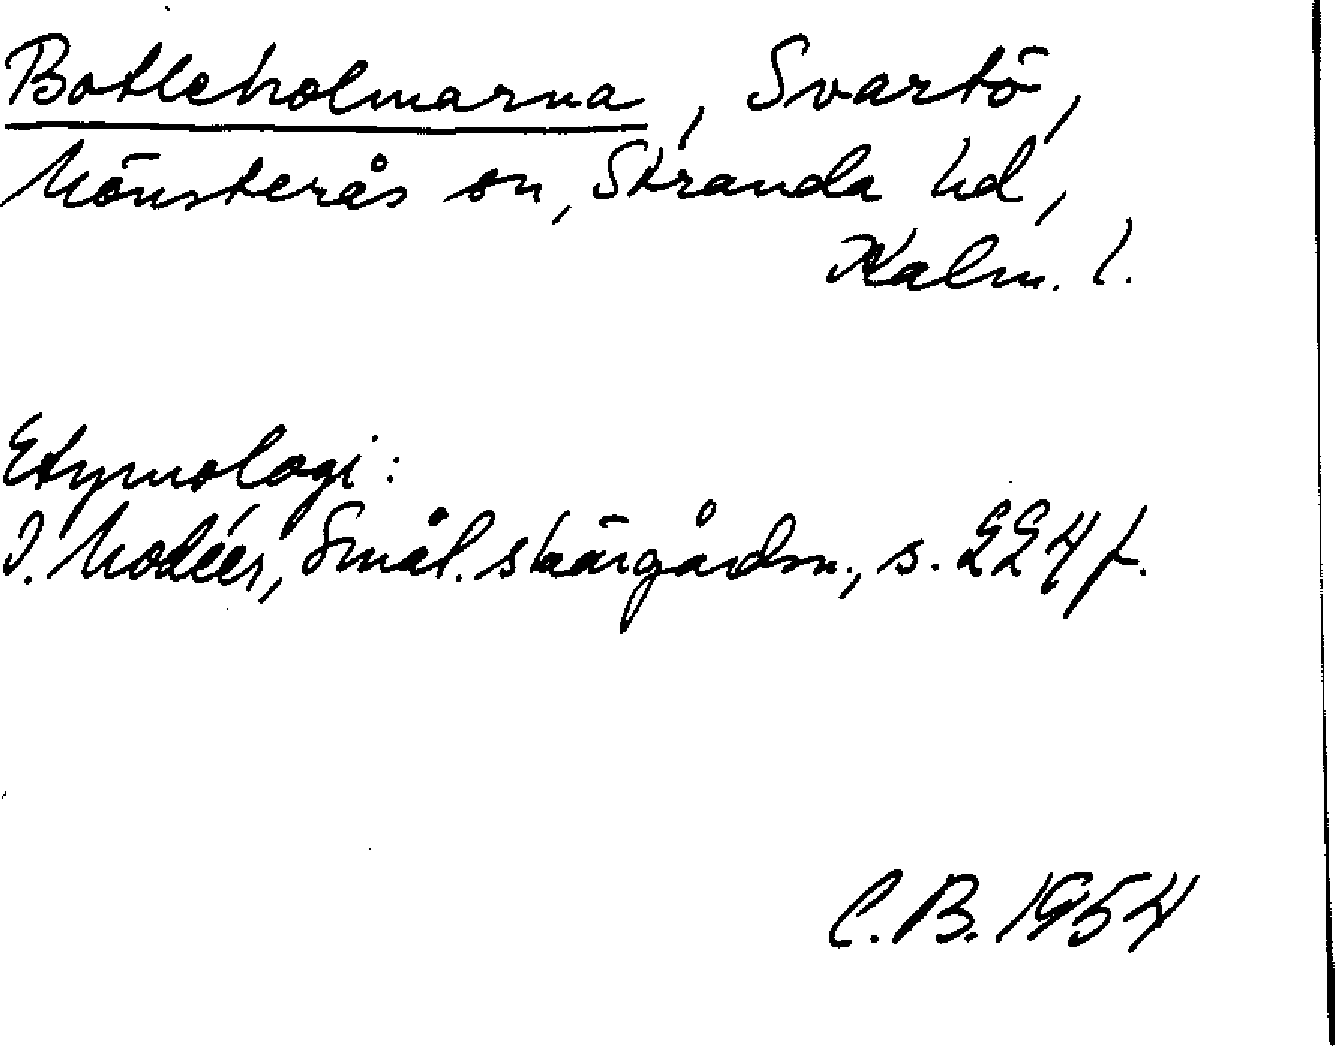 Botleholmarna, Svartö,
Mönsterås sn, Stranda hd,
Kalm. l.
Etymologi:
I. Modéer, Smål. skärgårdsn., s. 224 f.
C.B. 1954